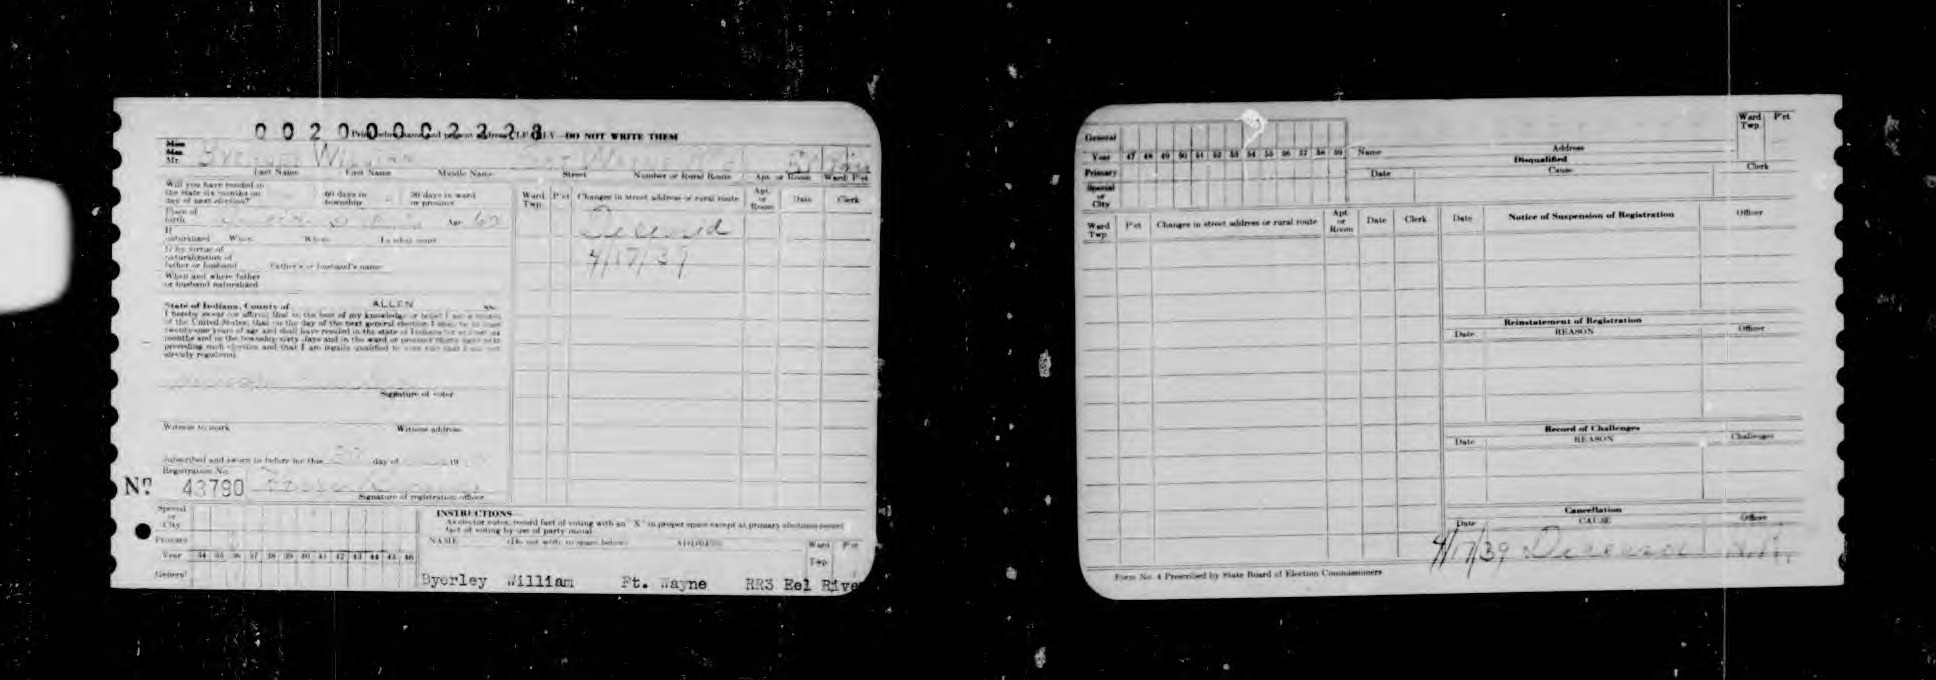 00200002228
DO NOT WRITE THEM
Miss
Mrs.
Mr. Byerley William Ft Wayne
Last Name First Name Middle Name Street Number or Rural Route Apt. or Room Ward P'ct
Will you have resided in
the state six months on
day of next election?
60 days in
township
30 days in ward
or precinct
Place of
birth
Age 62
If
naturalized When Where In what court
If by virtue of
naturalization of
father or husband Father's or husband's name
When and where father
or husband naturalized
State of Indiana, County of ALLEN SS:
I hereby swear (or affirm) that to the best of my knowledge or belief I am a citizen
of the United States; that on the day of the next general election I shall be at least
twenty-one years of age and shall have resided in the state of Indiana for at least six
months and in the township sixty days and in the ward or precinct thirty days next
preceding such election and that I am legally qualified to vote and that I am not
already registered.
Signature of voter
Witness to mark Witness address
Subscribed and sworn to before me this day of 19
Registration No.
Nº 43790
Signature of registration officer
Ward
Twp. P'ct Changes in street address or rural route Apt.
or
Room Date Clerk
Deceased
4/17/39
Special
or
City
Primary
Year 34 35 36 37 38 39 40 41 42 43 44 45 46
General
INSTRUCTIONS—
As elector votes, record fact of voting with an "X" in proper space except at primary elections record
fact of voting by use of party initial.
NAME (Do not write in space below) ADDRESS Ward P'ct
Twp
Byerley William Ft. Wayne RR3 Eel River
General
Year 47 48 49 50 51 52 53 54 55 56 57 58 59
Primary
Special
or
City
Name Address
Disqualified
Date Cause Clerk
Ward
Twp. P'ct
Ward
Twp. P'ct Changes in street address or rural route Apt.
or
Room Date Clerk
Date Notice of Suspension of Registration Officer
Reinstatement of Registration
Date REASON Officer
Record of Challenges
Date REASON Challenger
Cancellation
Date CAUSE Officer
4/17/39 Deceased
Form No. 4 Prescribed by State Board of Election Commissioners